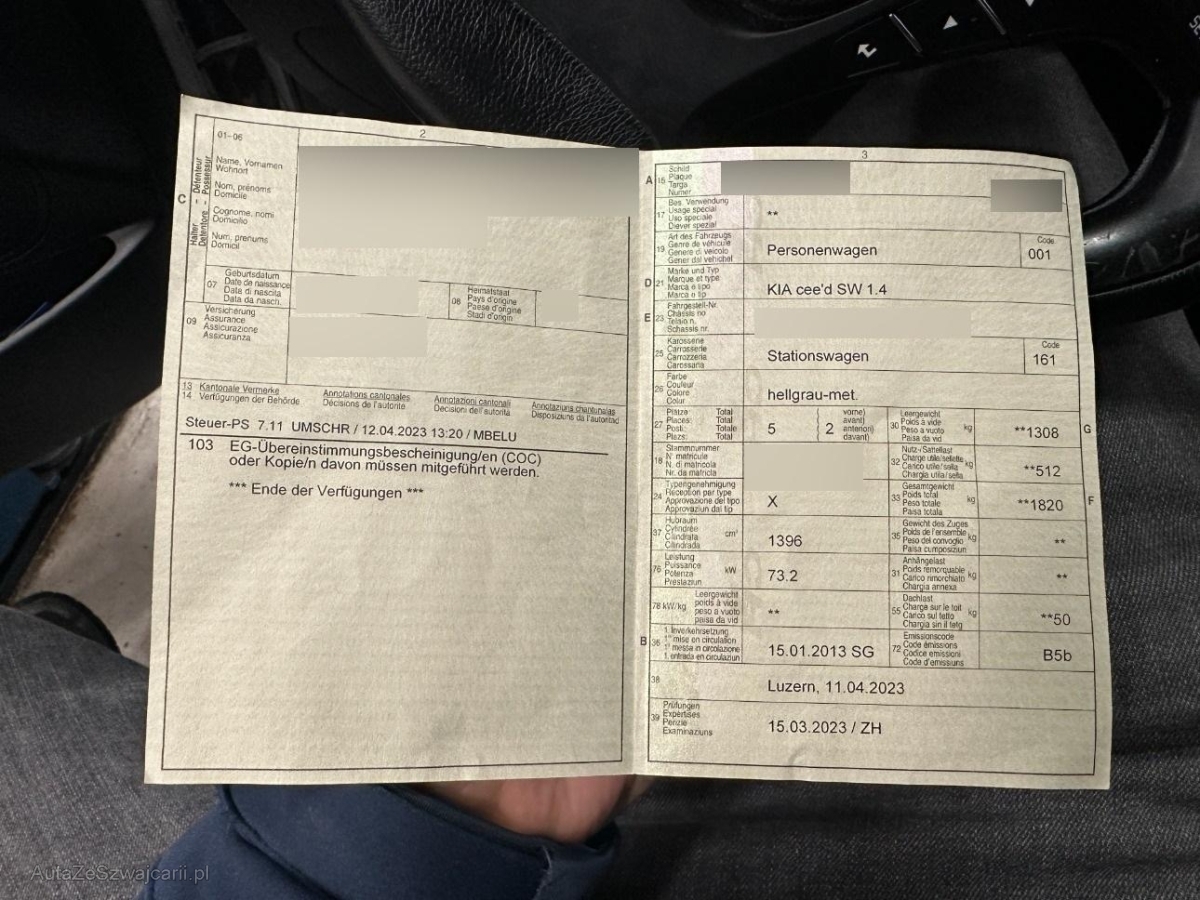 2
01-06
C
Halter - Détenteur
Detentore - Possessur
Name, Vornamen
Wohnort
Nom, prénoms
Domicile
Cognome, nomi
Domicilio
Num, prenums
Domicil
07
Geburtsdatum
Date de naissance
Data di nascita
Data da nasch.
08
Heimatstaat
Pays d'origine
Paese d'origine
Stadi d'origin
09
Versicherung
Assurance
Assicurazione
Assicuranza
13 Kantonale Vermerke Annotations cantonales Annotazioni cantonali Annotaziuns chantunalas
14 Verfügungen der Behörde Décisions de l'autorité Decisioni dell'autorità Disposiziuns da l'autoritad
Steuer-PS 7.11 UMSCHR / 12.04.2023 13:20 / MBELU
103 EG-Übereinstimmungsbescheinigung/en (COC)
oder Kopie/n davon müssen mitgeführt werden.
*** Ende der Verfügungen ***
3
A 15
Schild
Plaque
Targa
Numer
17
Bes. Verwendung
Usage spécial
Uso speciale
Diever spezial
**
19
Art des Fahrzeugs
Genre de véhicule
Genere di veicolo
Gener dal vehichel
Personenwagen
Code
001
D 21
Marke und Typ
Marque et type
Marca e tipo
Marca e tip
KIA cee'd SW 1.4
E 23
Fahrgestell-Nr.
Châssis no
Telaio n.
Schassis nr.
25
Karosserie
Carrosserie
Carrozzeria
Carossaria
Stationswagen
Code
161
26
Farbe
Couleur
Colore
Colur
hellgrau-met.
27
Plätze Total
Places: Total
Posti: Totale
Plazs: Total
5
2
vorne)
avant)
anteriori)
davant)
30
Leergewicht
Poids à vide
Peso a vuoto
Paisa da vid
kg
**1308
G
18
Stammnummer
N° matricule
N. di matricola
Nr. da matricla
32
Nutz-/Sattellast
Charge utile/sellette
Carico utile/sella
Chargia utila/sella
kg
**512
24
Typengenehmigung
Réception par type
Approvazione del tipo
Approvaziun dal tip
X
33
Gesamtgewicht
Poids total
Peso totale
Paisa totala
kg
**1820
F
37
Hubraum
Cylindrée
Cilindrata
Cilindrada
cm³
1396
35
Gewicht des Zuges
Poids de l'ensemble
Peso del convoglio
Paisa cumposiziun
kg
**
76
Leistung
Puissance
Potenza
Prestaziun
kW
73.2
31
Anhängelast
Poids remorquable
Carico rimorchiato
Chargia annexa
kg
**
78 kW/kg
Leergewicht
poids à vide
peso a vuoto
paisa da vid
**
55
Dachlast
Charge sur le toit
Carico sul tetto
Chargia sin il tetg
kg
**50
B 36
1. Inverkehrsetzung
1re mise en circulation
1a messa in circolazione
1. entrada en circulaziun
15.01.2013 SG
72
Emissionscode
Code émissions
Codice emissioni
Code d'emissiuns
B5b
38
Luzern, 11.04.2023
39
Prüfungen
Expertises
Perizie
Examinaziuns
15.03.2023 / ZH
AutaZeSzwajcarii.pl